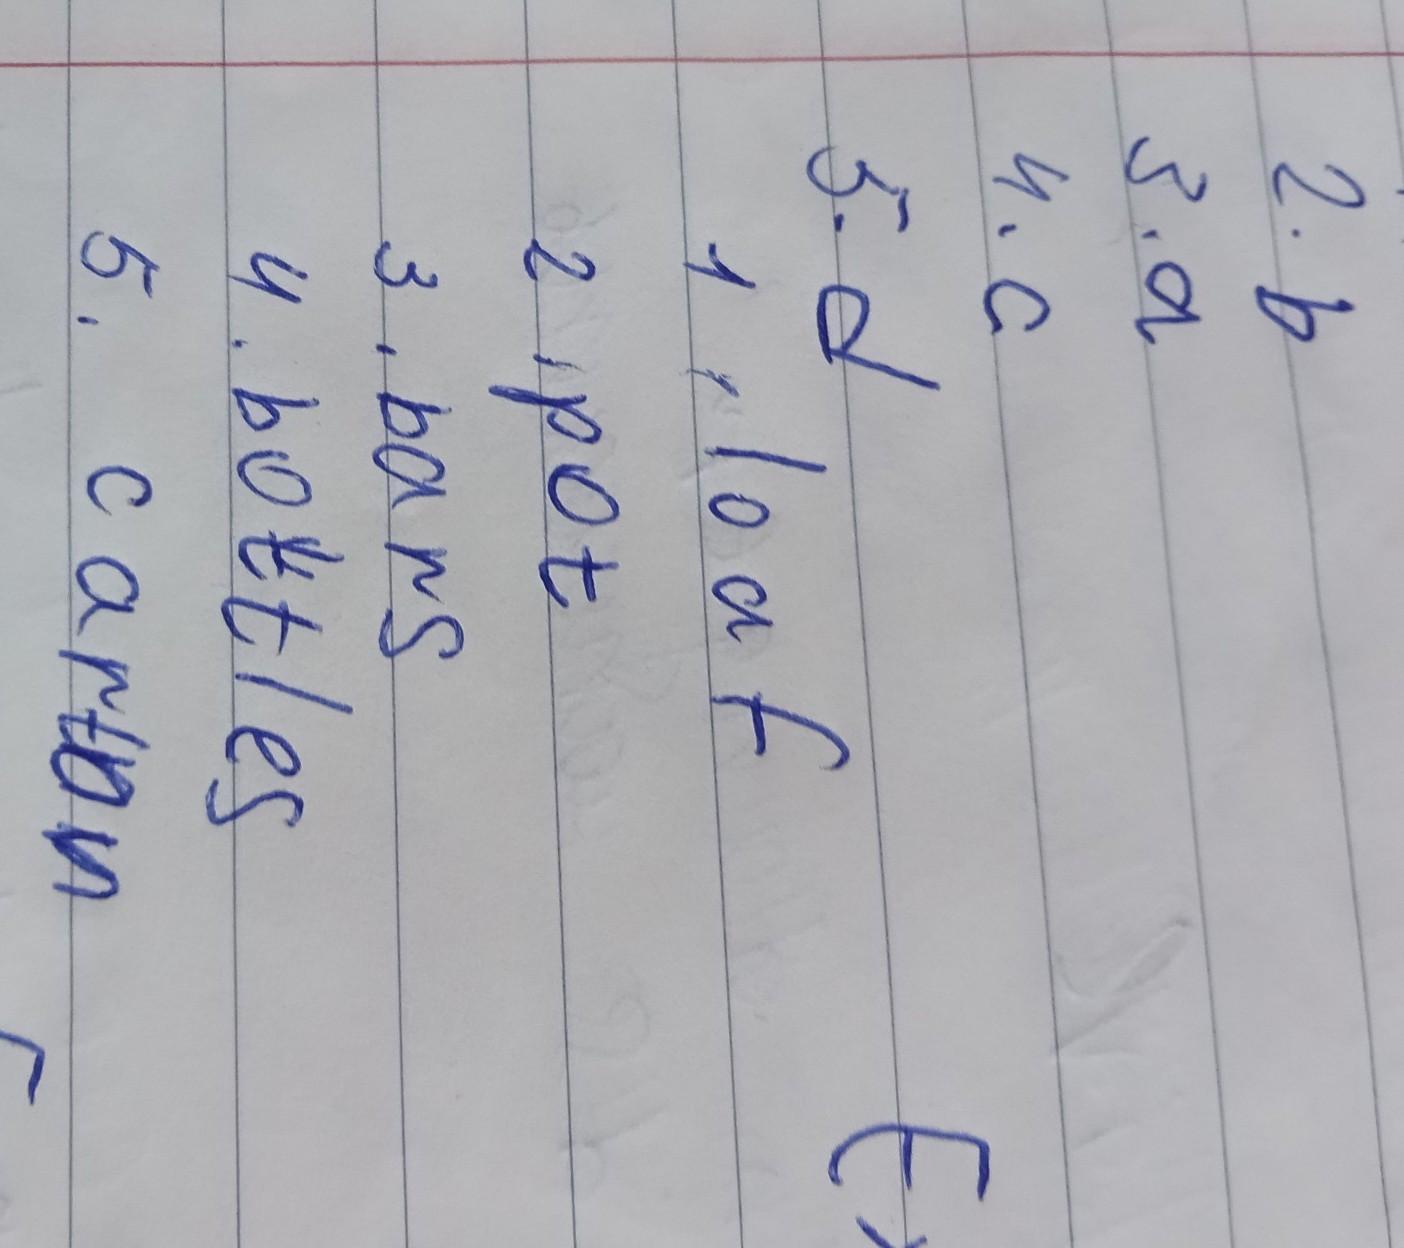 2. b
3. a
4. c
5. d
Ex
1. loaf
2. pot
3. bars
4. bottles
5. carton